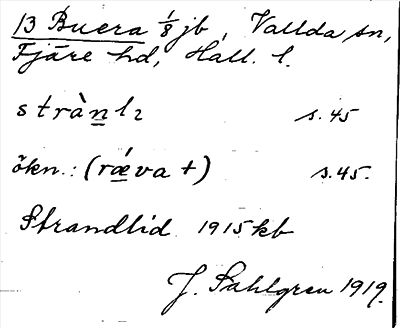 13 Buera 1/8 jb, Vallda sn,
Fjäre hd, Hall. l.
stràn l2 s. 45
ökn.: (rǽva +) s. 45.
Strandlid 1915 kb
J. Sahlgren 1919.